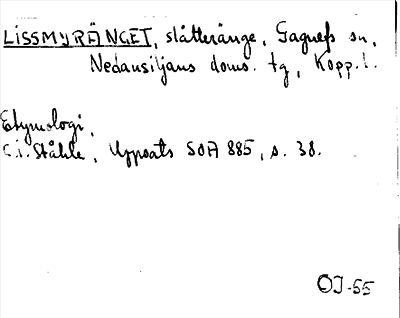 LISSMYRÄNGET, slåtteränge, Gagnefs sn,
Nedansiljans doms. tg, Kopp.l.
Etymologi.
C.I. Ståhle, Uppsats SOA 885, s. 38.
OJ-55